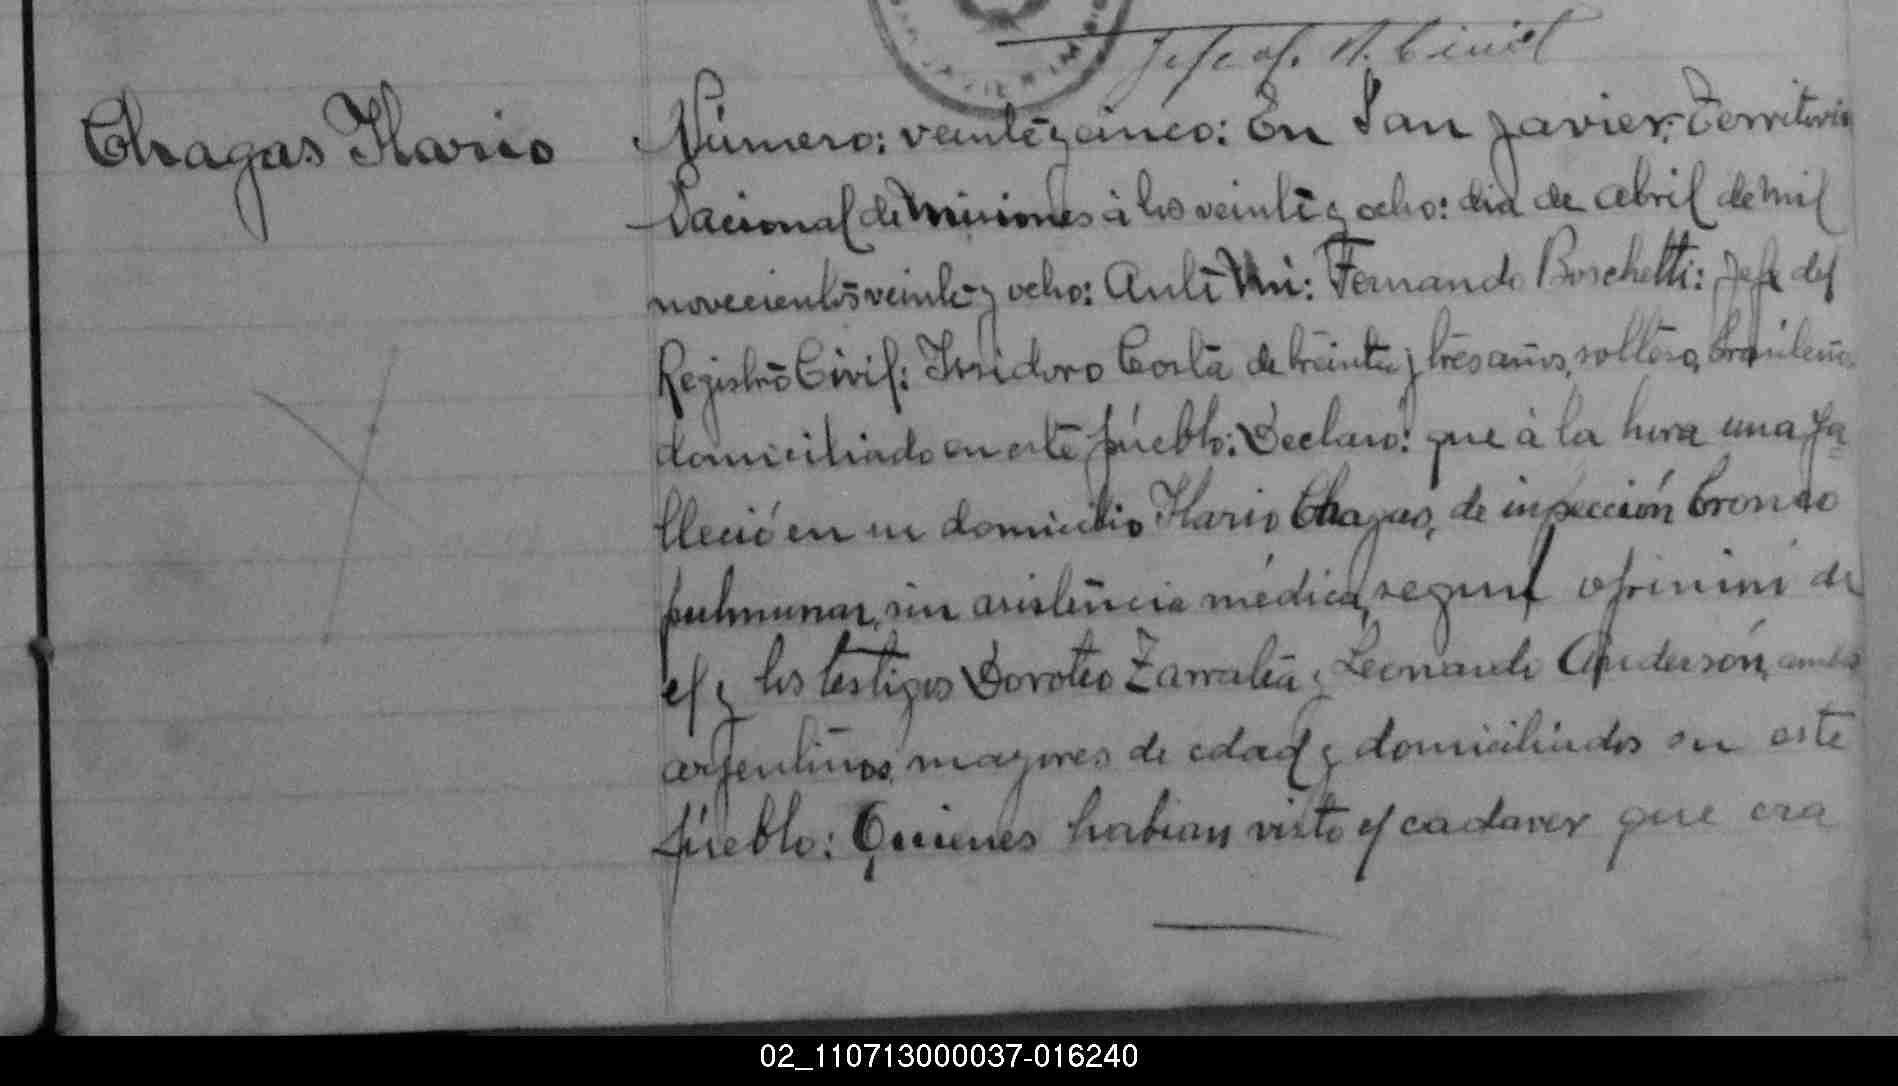 Jefe of. R. Civil
Chagas Ilario
Número: veinte y cinco: En San Javier, Territorio
Nacional de Misiones à los veinte y ocho: dia de abril de mil
novecientos veinte y ocho: Ante Mi: Fernando Boschetti: Jefe del
Registro Civil: Issidoro Costa de treinta y tres años, soltero, brasileño
domiciliado en este pueblo: Declaró: que à la hora una fa-
lleció en su domicilio Ilario Chagas, de inpección bronco
pulmunar, sin asistencia médica, segun opinini de
el y los testigos Doroteo Zarratea y Leonardo Anderson, ambos
argentinos, mayores de edad y domiciliados en este
pueblo: Quienes habian visto el cadaver que era
02_110713000037-016240